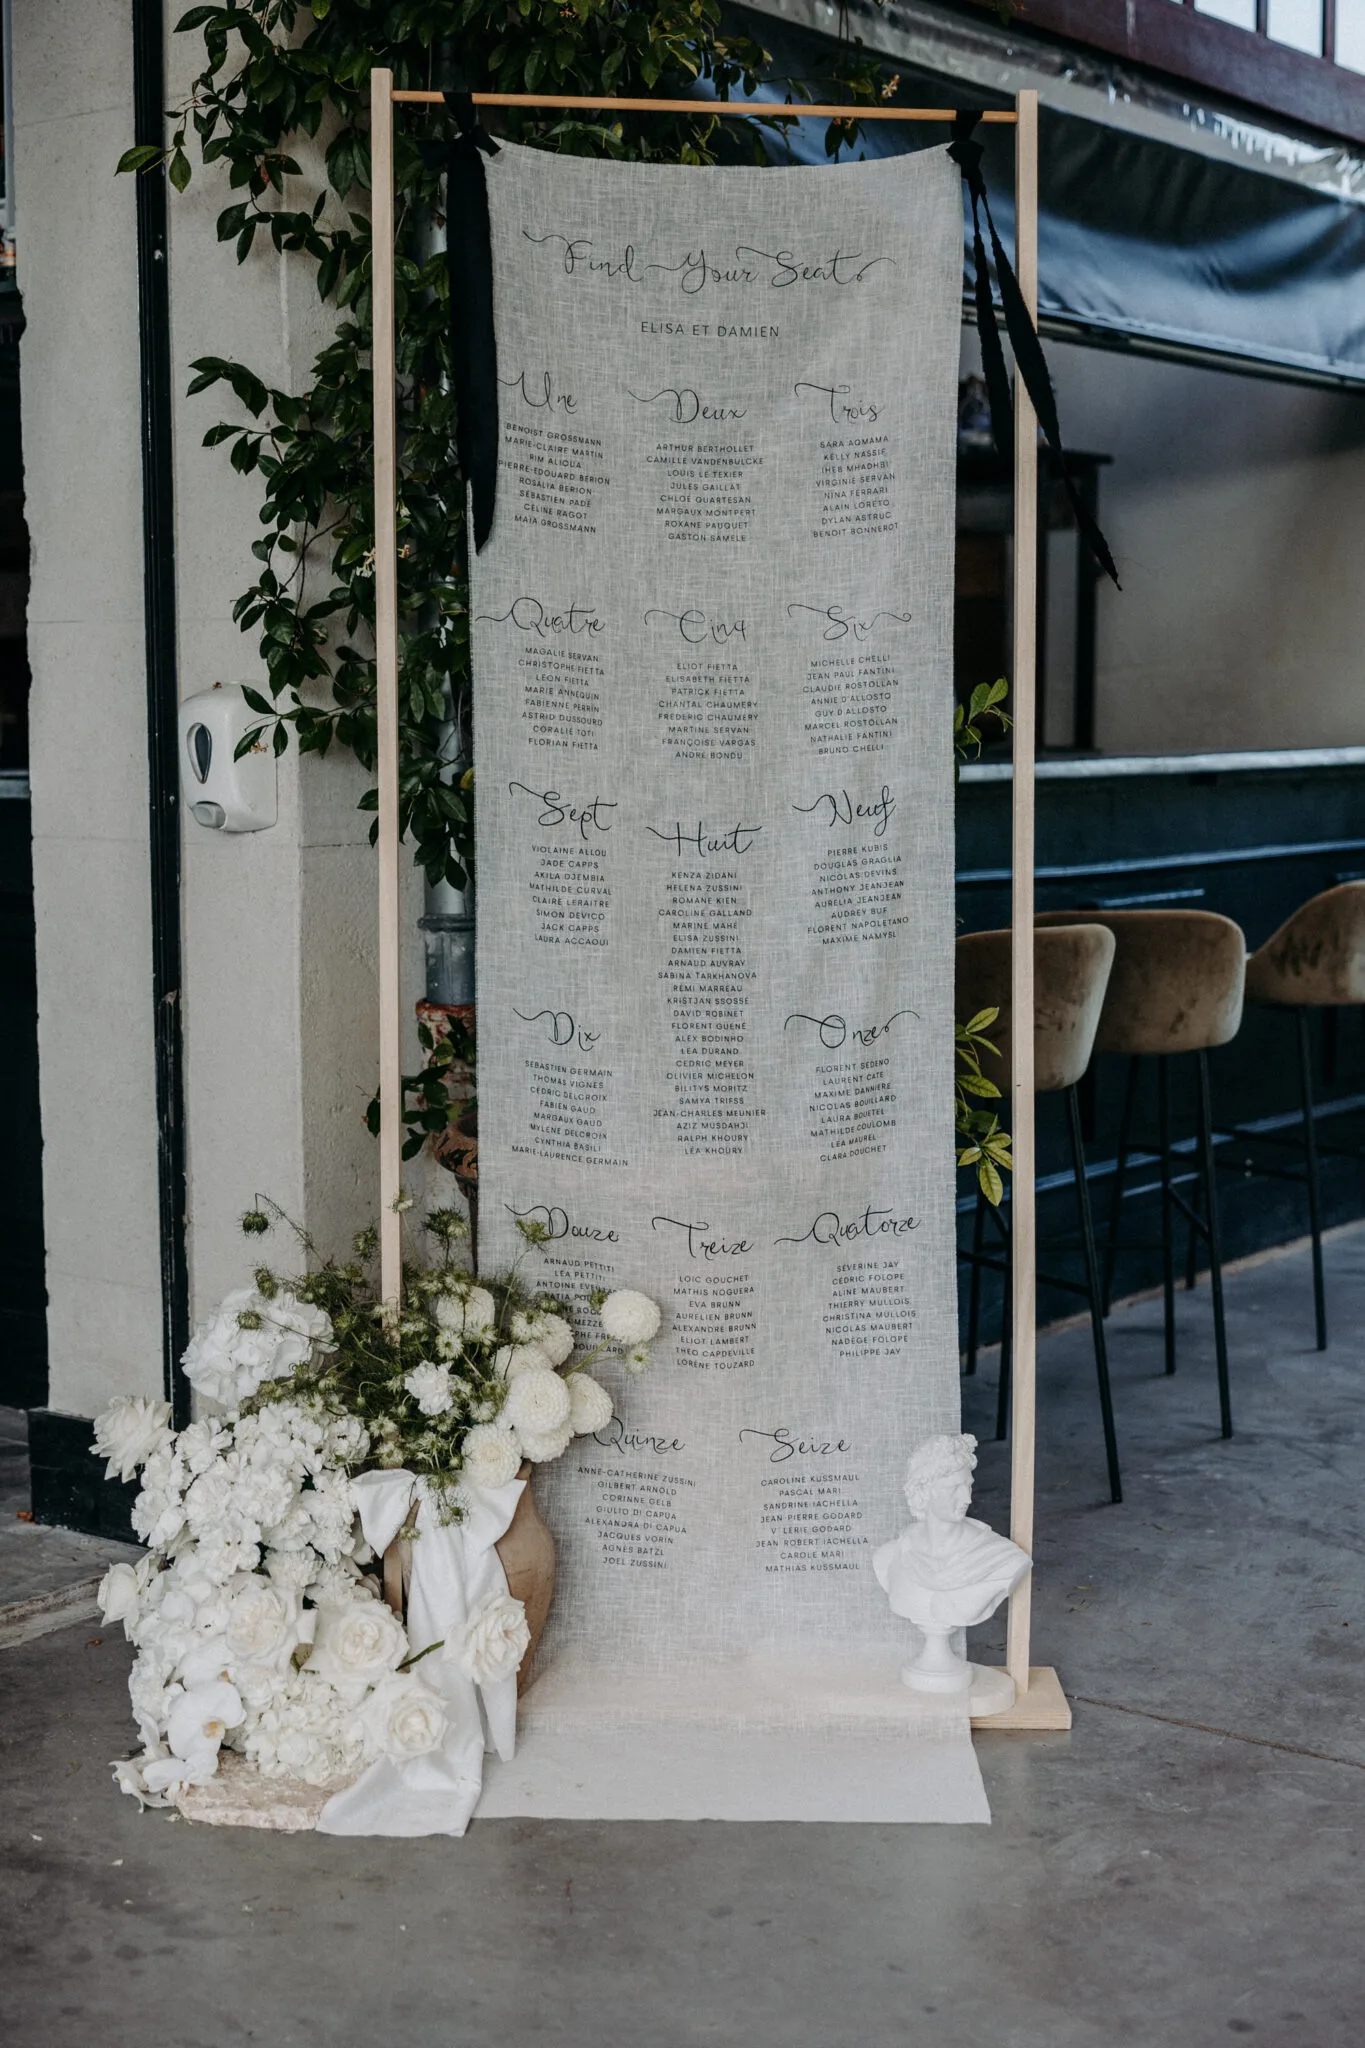 Find Your Seat
ELISA ET DAMIEN
Une
BENOIST GROSSMANN
MARIE-CLAIRE MARTIN
RIM ALIOUA
PIERRE-EDOUARD BERION
ROSALIA BERION
SEBASTIEN PADE
CELINE RAGOT
MAIA GROSSMANN
Deux
ARTHUR BERTHOLLET
CAMILLE VANDENBULCKE
LOUIS LE TEXIER
JULES GAILLAT
CHLOE QUARTESAN
MARGAUX MONTPERT
ROXANE PAUQUET
GASTON SAMELE
Trois
SARA AQMAMA
KELLY NASSIF
IHEB MHADHBI
VIRGINIE SERVAN
NINA FERRARI
ALAIN LORETO
DYLAN ASTRUC
BENOIT BONNEROT
Quatre
MAGALIE SERVAN
CHRISTOPHE FIETTA
LEON FIETTA
MARIE ANNEQUIN
FABIENNE PERRIN
ASTRID DUSSOURD
CORALIE TOTI
FLORIAN FIETTA
Cinq
ELIOT FIETTA
ELISABETH FIETTA
PATRICK FIETTA
CHANTAL CHAUMERY
FREDERIC CHAUMERY
MARTINE SERVAN
FRANÇOISE VARGAS
ANDRE BONDU
Six
MICHELLE CHELLI
JEAN PAUL FANTINI
CLAUDIE ROSTOLLAN
ANNIE D'ALLOSTO
GUY D'ALLOSTO
MARCEL ROSTOLLAN
NATHALIE FANTINI
BRUNO CHELLI
Sept
VIOLAINE ALLOU
JADE CAPPS
AKILA DJEMBIA
MATHILDE CURVAL
CLAIRE LERAITRE
SIMON DEVICO
JACK CAPPS
LAURA ACCAOUI
Huit
KENZA ZIDANI
HELENA ZUSSINI
ROMANE KIEN
CAROLINE GALLAND
MARINE MAHE
ELISA ZUSSINI
DAMIEN FIETTA
ARNAUD AUVRAY
SABINA TARKHANOVA
REMI MARREAU
KRISTJAN SSOSSE
DAVID ROBINET
FLORENT GUENÉ
ALEX BODINHO
LEA DURAND
CEDRIC MEYER
OLIVIER MICHELON
BILITYS MORITZ
SAMYA TRIFSS
JEAN-CHARLES MEUNIER
AZIZ MUSDAHJI
RALPH KHOURY
LÉA KHOURY
Neuf
PIERRE KUBIS
DOUGLAS GRAGLIA
NICOLAS DEVINS
ANTHONY JEANJEAN
AURELIA JEANJEAN
AUDREY BUF
FLORENT NAPOLETANO
MAXIME NAMYSL
Dix
SEBASTIEN GERMAIN
THOMAS VIGNES
CEDRIC DELCROIX
FABIEN GAUD
MARGAUX GAUD
MYLENE DELCROIX
CYNTHIA BASILI
MARIE-LAURENCE GERMAIN
Onze
FLORENT SEDENO
LAURENT CATE
MAXIME DANNIERE
NICOLAS BOUILLARD
LAURA BOUETEL
MATHILDE COULOMB
LÉA MAUREL
CLARA DOUCHET
Douze
ARNAUD PETTITI
LEA PETTITI
ANTOINE
BOUILLARD
Treize
LOIC GOUCHET
MATHIS NOGUERA
EVA BRUNN
AURELIEN BRUNN
ALEXANDRE BRUNN
ELIOT LAMBERT
THEO CAPDEVILLE
LORÈNE TOUZARD
Quatorze
SÉVERINE JAY
CEDRIC FOLOPE
ALINE MAUBERT
THIERRY MULLOIS
CHRISTINA MULLOIS
NICOLAS MAUBERT
NADEGE FOLOPE
PHILIPPE JAY
Quinze
ANNE-CATHERINE ZUSSINI
GILBERT ARNOLD
CORINNE GELB
GIULIO DI CAPUA
ALEXANDRA DI CAPUA
JACQUES VORIN
AGNÈS BATZL
JOEL ZUSSINI
Seize
CAROLINE KUSSMAUL
PASCAL MARI
SANDRINE IACHELLA
JEAN-PIERRE GODARD
V LERIE GODARD
JEAN ROBERT IACHELLA
CAROLE MARI
MATHIAS KUSSMAUL